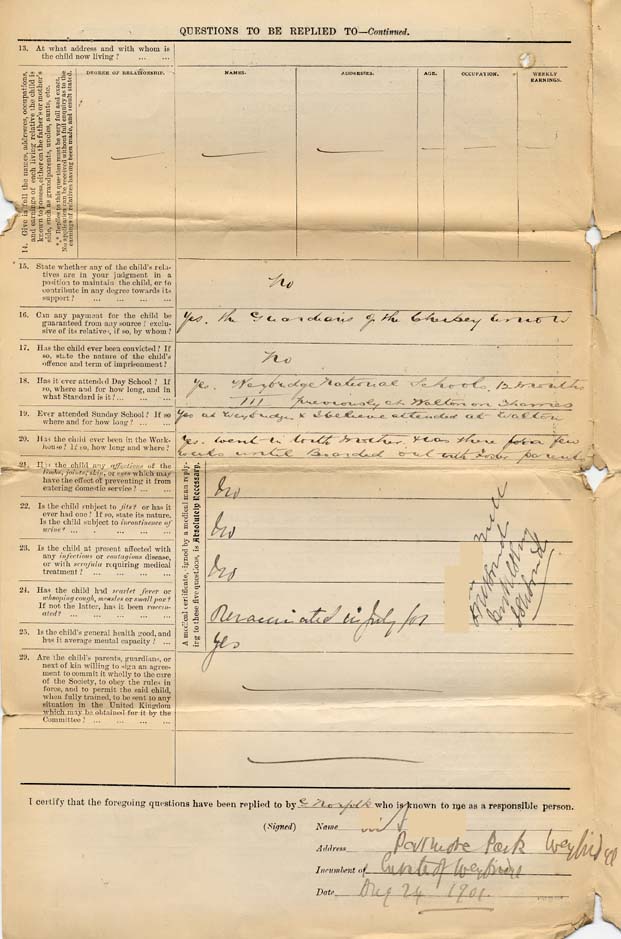 QUESTIONS TO BE REPLIED TO—Continued.
13. At what address and with whom is
the child now living? ... ...
14. Give in full the names, addresses, occupations,
and earnings of each living relative the child is
known to possess, either on the father's or mother's
side, such as grandparents, uncles, aunts, etc.
*** Replies to this question must be very full and exact.
No application can be received without full enquiry as to the
earnings of relatives having been made, and result stated.
DEGREE OF RELATIONSHIP. NAMES. ADDRESSES. AGE. OCCUPATION. WEEKLY
EARNINGS.
15. State whether any of the child's rela-
tives are in your judgment in a
position to maintain the child, or to
contribute in any degree towards its
support? ... ... ... ...
No
16. Can any payment for the child be
guaranteed from any source? exclu-
sive of its relatives, if so, by whom?
Yes. the Guardians of the Chertsey Union
17. Has the child ever been convicted? If
so, state the nature of the child's
offence and term of imprisonment?
No
18. Has it ever attended Day School? If
so, where and for how long, and in
what Standard is it? ... ...
Yes. Weybridge National Schools. 12 months
III previously at Walton on Thames
19. Ever attended Sunday School? If so
where and for how long? ... ...
Yes at Weybridge & I believe attended at Walton
20. Has the child ever been in the Work-
house? If so, how long and where?
Yes. went in with Mother & was there for a few
weeks until Boarded out with Foster parents
21. Has the child any affections of the
limbs, joints, skin, or eyes which may
have the effect of preventing it from
entering domestic service? ... ...
No
22. Is the child subject to fits? or has it
ever had one? If so, state its nature.
Is the child subject to incontinence of
urine? ... ... ... ...
No
23. Is the child at present affected with
any infectious or contagious disease,
or with scrofula requiring medical
treatment? ... ... ... ...
No
24. Has the child had scarlet fever or
whooping cough, measles or small pox?
If not the latter, has it been vaccin-
ated? ... ... ... ...
Revaccinated in July /01
25. Is the child's general health good, and
has it average mental capacity? ...
Yes
A medical certificate, signed by a medical man reply-
ing to these five questions, is Absolutely Necessary.
29. Are the child's parents, guardians, or
next of kin willing to sign an agree-
ment to commit it wholly to the care
of the Society, to obey the rules in
force, and to permit the said child,
when fully trained, to be sent to any
situation in the United Kingdom
which may be obtained for it by the
Committee? ... ... ... ...
I certify that the foregoing questions have been replied to by E Norfolk who is known to me as a responsible person.
(Signed) Name
Address Portmore Park Weybridge
Incumbent of Curate of Weybridge
Date Aug 24 1901